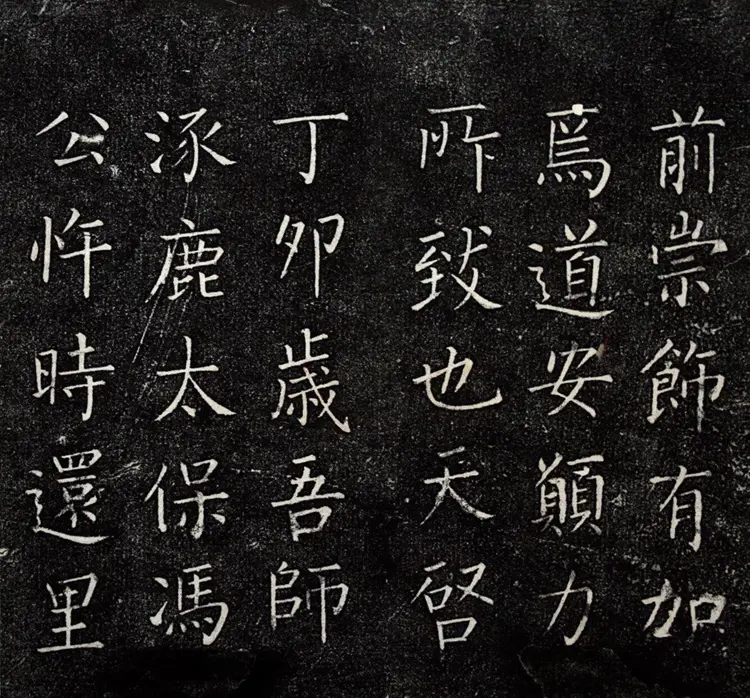 前崇飾有加
焉道安顛力
所致也天啓
丁卯歲吾師
涿鹿太保馮
公忤時還里